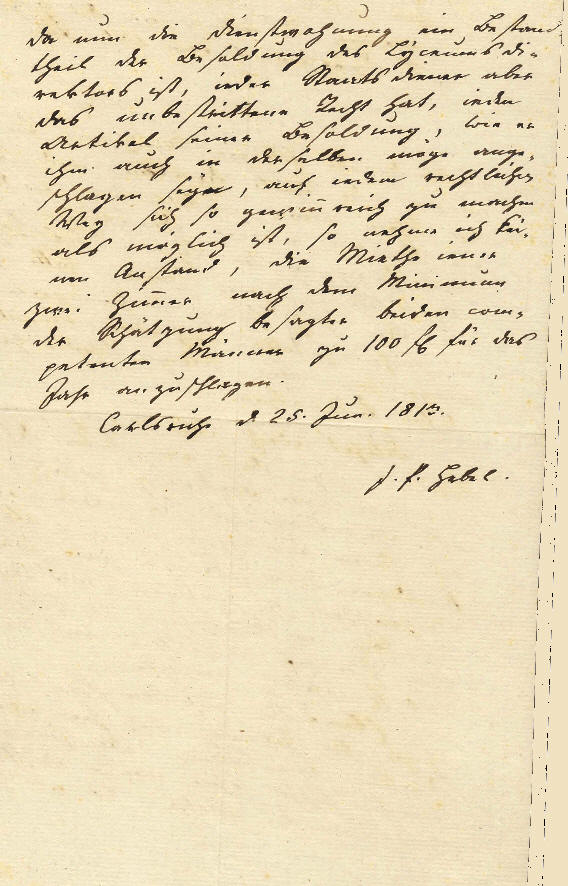 da nun die Dienstwohnung ein Bestand
theil der Besoldung des Lyceumsdi-
rektors ist, jeder Staatsdiener aber
das unbestrittene Recht hat, jeden
Artikel seiner Besoldung, wie er
ihm auch in derselben möge ange-
schlagen seyn, auf jedem rechtlichen
Weg sich so gewinnreich zu machen
als möglich ist, so nehme ich kei-
nen Anstand, die Miethe jener
zwei Zimmer nach dem Minimum
der Schätzung besagter beiden com-
petenten Männer zu 100 fl für das
Jahr anzuschlagen.
Carlsruhe d 25. Jun.
J. P. Hebel.